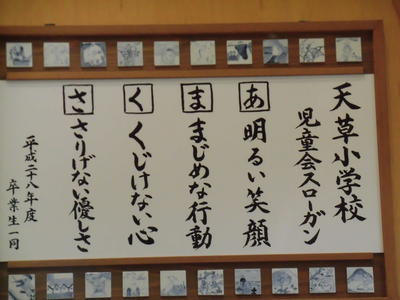 天草小学校
児童会スローガン
あ 明るい笑顔
ま まじめな行動
く くじけない心
さ さりげない優しさ
平成二十八年度
卒業生一同